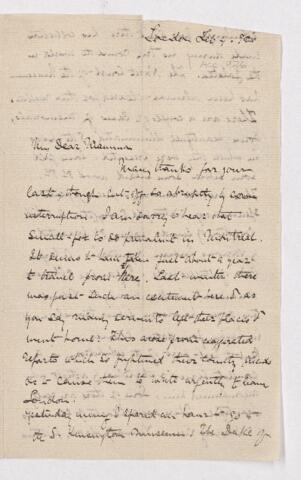 London Feb
My Dear Mamma
Many thanks for your
last, though cut off so abruptly by some
interruption. I am sorry to hear that
Small-pox to be prevalent in Montreal.
It seems to have taken just about a year
to travel from here. Last winter there
was just such an excitement here & as
you say, many servants left their places &
went home. This arose from exaggerated
reports which so frightened their country
as to cause them to write urgently to leave
London.
Yesterday morning I spared an hour to go to
the S. Kensington Museum. The Duke of